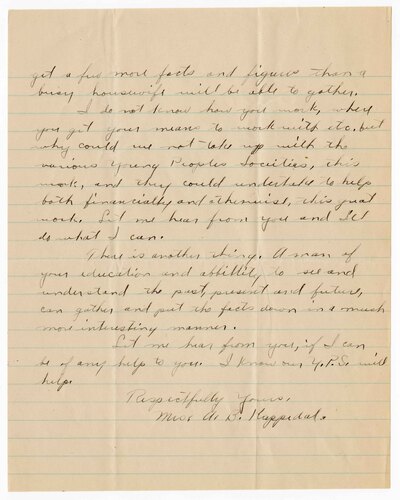 get a few more facts and figures than a
busy housewife will be able to gather.
I do not know how you work, where
you get your means to work with etc. but
why could we not take up with the
various Young Peoples Societies, this
work, and they could undertake to help
both financially, and otherwise, this great
work. Let me hear from you and I'll
do what I can.
There is another thing. A man of
your education and abbillity, to see and
understand the past, present and future,
can gather and put the facts down in a much
more interesting manner.
Let me hear from you, if I can
be of any help to you. I know our Y.P.S. will
help.
Respectfully Yours,
Mrs. A. B.